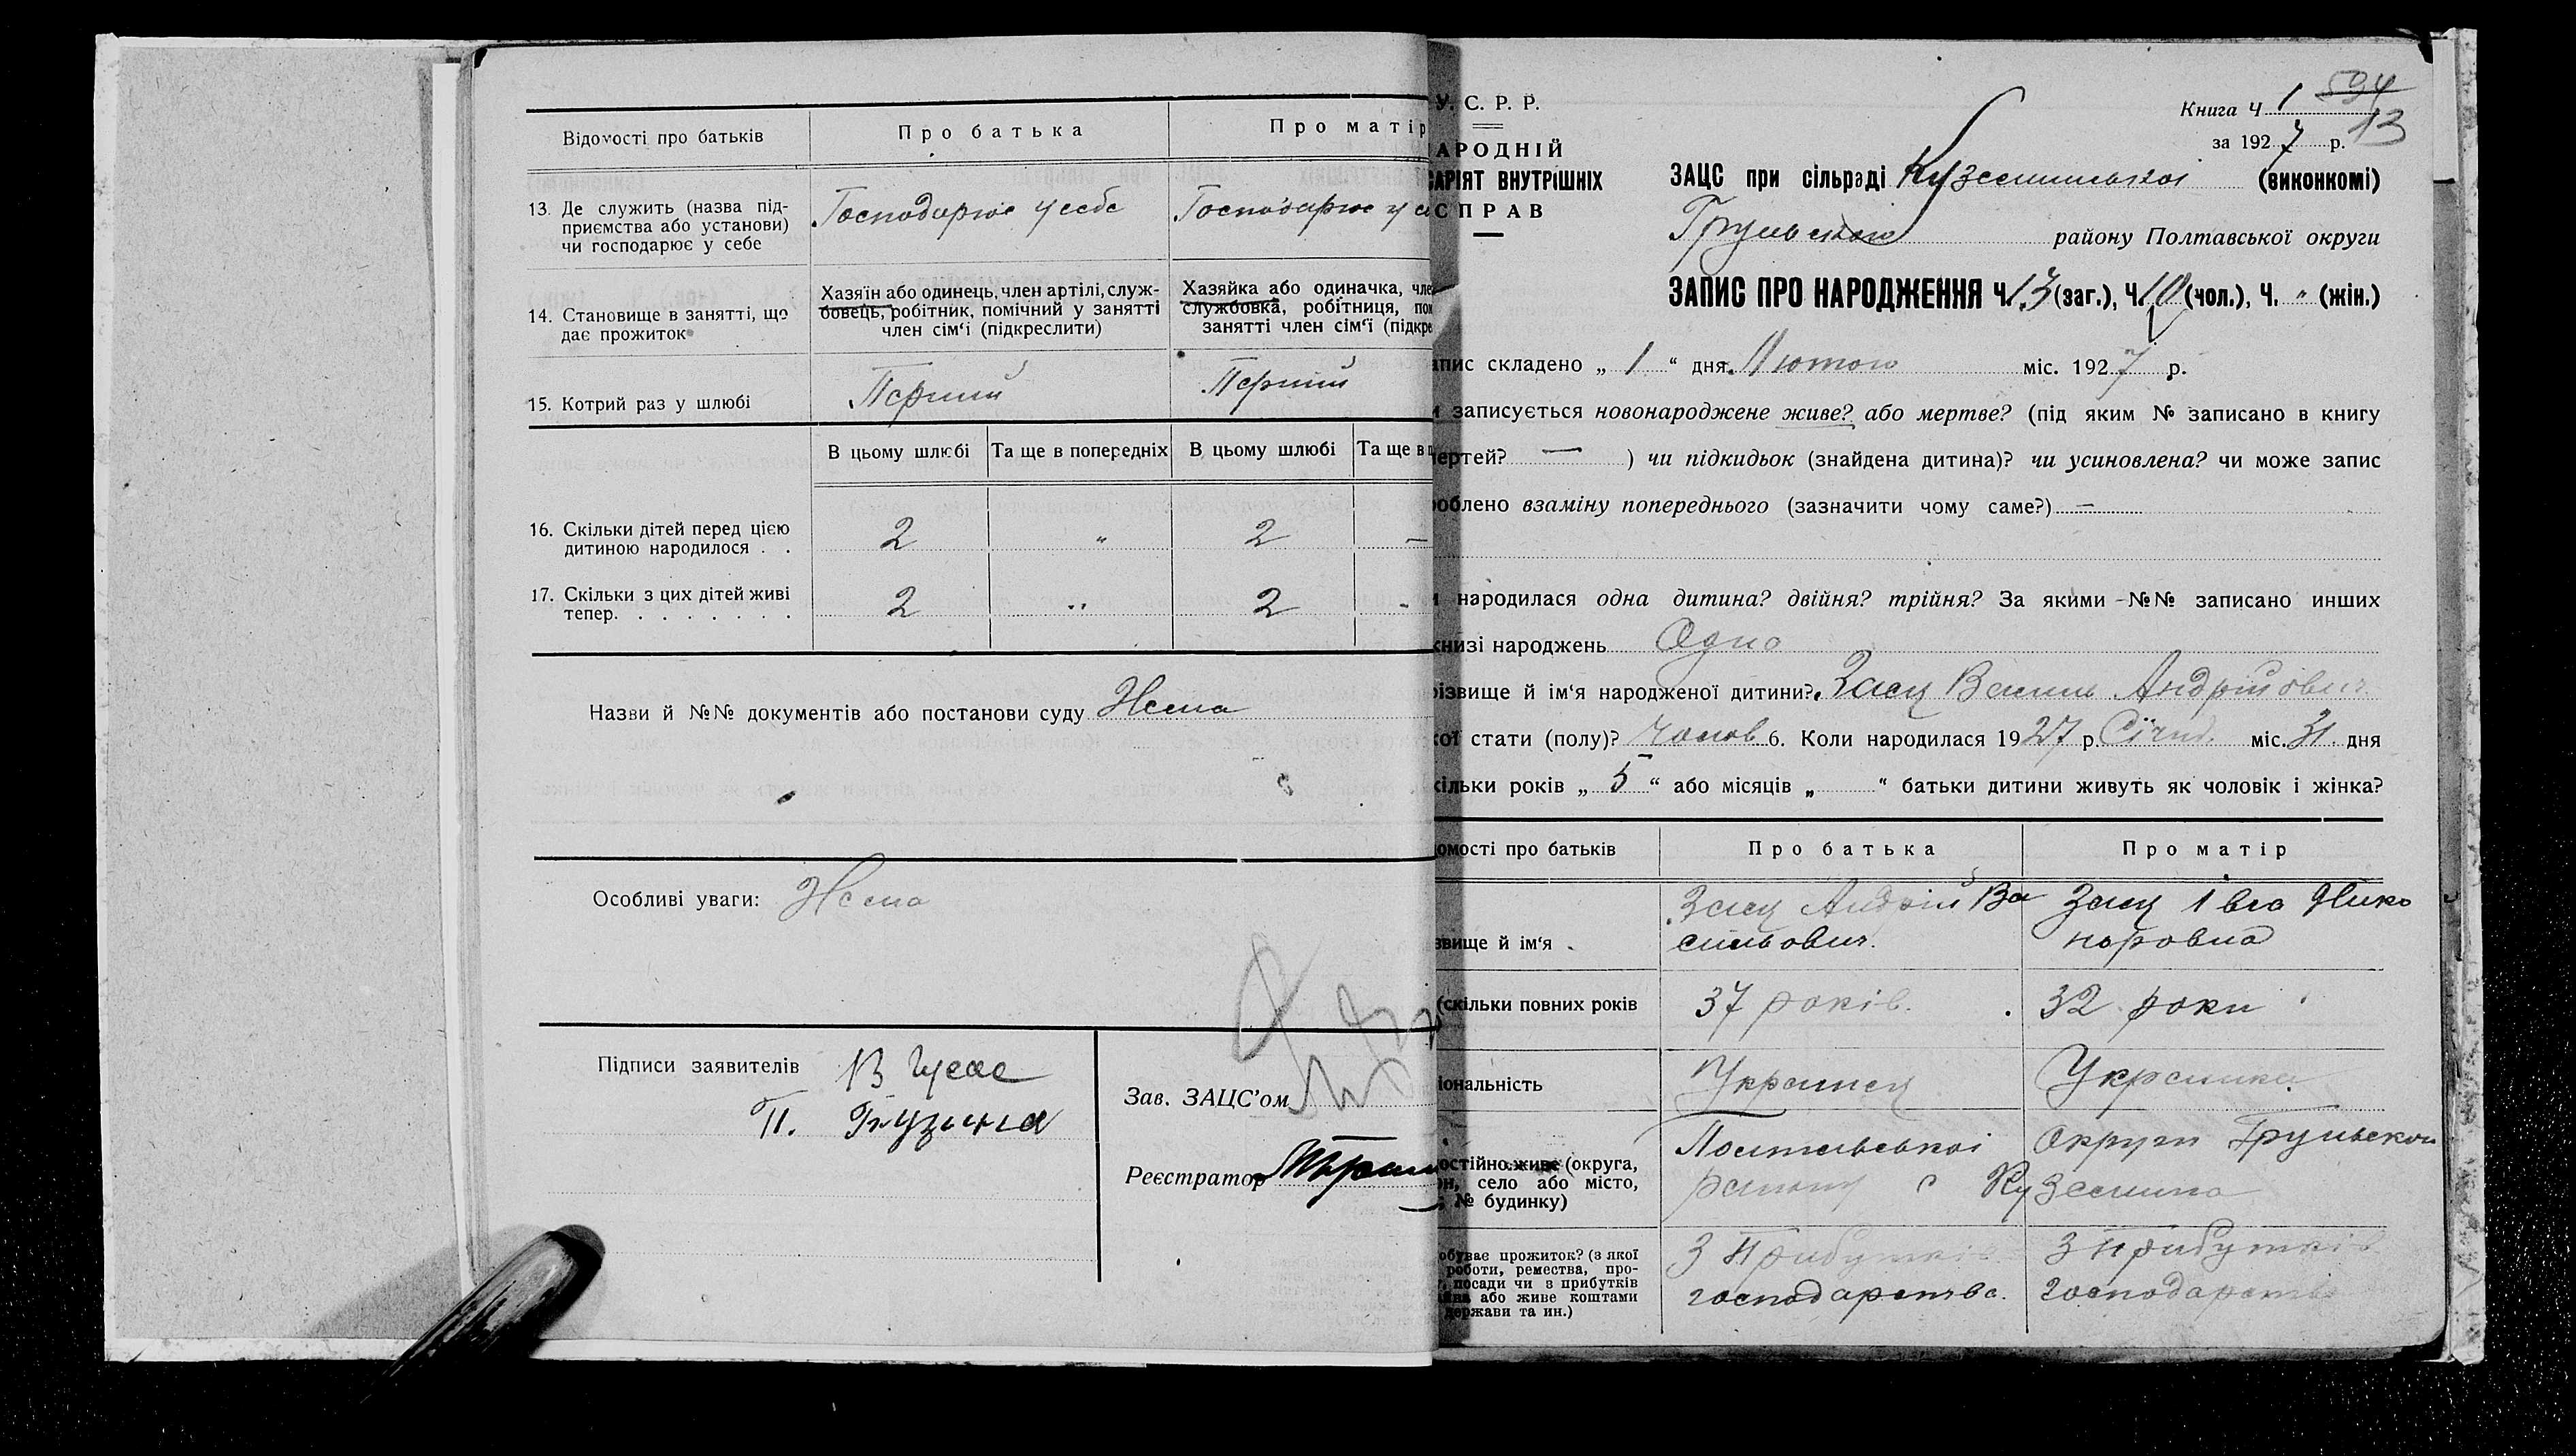 Відомості про батьків
Про батька
Про матір
13. Де служить (назва під-
приємства або установи)
чи господарює у себе
Господарює у себе
Господарює у се
14. Становище в занятті, що
дає прожиток
Хазяїн або одинець, член артілі, служ-
бовець, робітник, помічний у занятті
член сім‘ї (підкреслити)
Хазяйка або одиначка, чле
службовка, робітниця, пом
занятті член сім‘ї (підкре
15. Котрий раз у шлюбі
Перший
Перший
В цьому шлюбі
Та ще в попередніх
В цьому шлюбі
Та ще в п
16. Скільки дітей перед цією
дитиною народилося . .
2 „ 2 —
17. Скільки з цих дітей живі
тепер. . . . . . . .
2 „ 2 -
Назви й №№ документів або постанови суду Нема
Особливі уваги: Нема
Підписи заявителів В Гусак
П.
Зав. ЗАЦС’ом
Реєстратор
У. С. Р. Р.
АРОДНІЙ
САРІЯТ ВНУТРІШНІХ
СПРАВ
Книга Ч 1 594
за 1927 р. 13
ЗАЦС при сільраді Куземинської (виконкомі)
Грунського району Полтавської округи
ЗАПИС ПРО НАРОДЖЕННЯ Ч 13 (заг.), Ч 10 (чол.), Ч. „ (жін.)
апис складено „ 1 “ дня Лютого міс. 1927 р.
и записується новонароджене живе? або мертве? (під яким № записано в книгу
мертей? — ) чи підкидьок (знайдена дитина)? чи усиновлена? чи може запис
роблено взаміну попереднього (зазначити чому саме?) —
и народилася одна дитина? двійня? трійня? За якими №№ записано инших
книзі народжень Одно
різвище й ім‘я народженої дитини? Заєц Василь Андрійович
кої стати (полу)? чолов 6. Коли народилася 1927 р. Січня міс. 31. дня
кільки років „ 5 “ або місяців „ “ батьки дитини живуть як чоловік і жінка?
омості про батьків
Про батька
Про матір
звище й ім‘я .
Заєц Андрій Ва
сильович.
Заєц Івга Нико
норовна
(скільки повних років
37 років.
32 роки
іональність
Украинец
Украинка
остійно живе (округа,
он, село або місто,
№ будинку)
Полтавської Округи Грунської
району с Куземина
обуває прожиток? (з якої
роботи, ремества, про-
, посади чи з прибутків
айна або живе коштами
держави та ин.)
З прибутків
господарства.
З прибутків
господарства